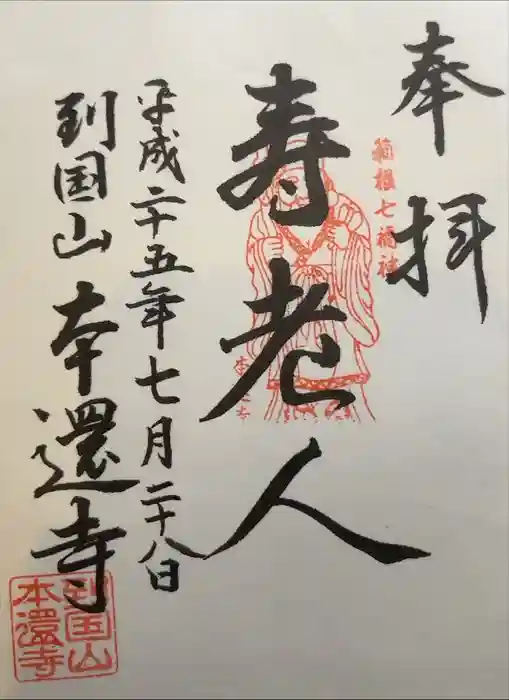 奉拝
箱根七福神
寿老人
本還寺
平成二十五年七月二十八日
到国山 本還寺
到国山
本還寺